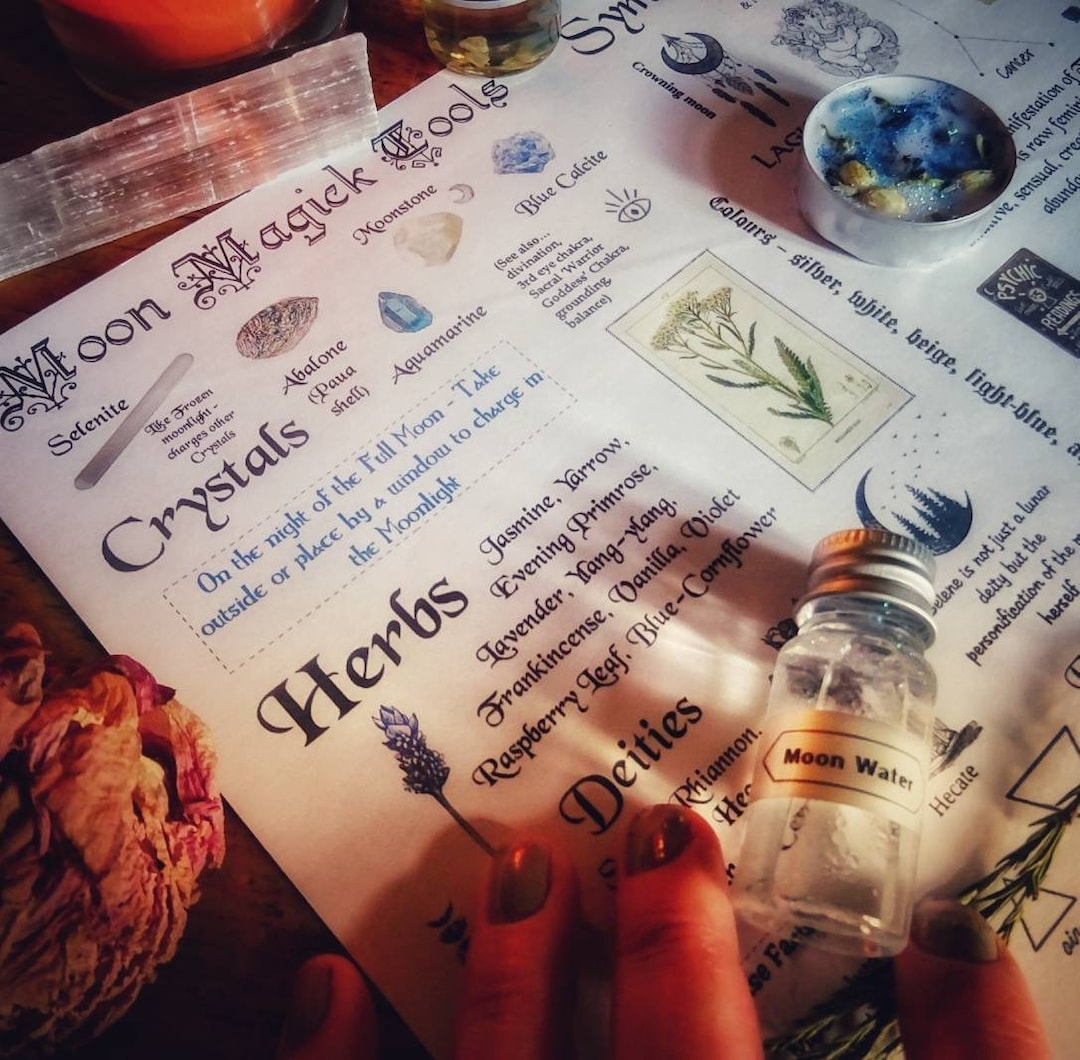 Moon Magick Tools
Selenite
Like Frozen
moonlight -
charges other
Crystals
Abalone
(Paua
shell)
Moonstone
Aquamarine
Blue Calcite
(See also...
divination,
3rd eye chakra,
Sacral 'Warrior
Goddess' Chakra,
grounding
balance)
Crystals
On the night of the Full Moon - Take
outside or place by a window to charge in
the Moonlight
Herbs
Jasmine, Yarrow,
Evening Primrose,
Lavender, Yang-ylang,
Frankincense, Vanilla, Violet
Raspberry Leaf, Blue-Cornflower
Deities
Rhiannon,
Crowning moon
Cancer
Colours - silver, white, beige, light-blue,
PSYCHIC
READINGS
is not just a lunar
deity but the
personification of the
herself
Hecate
Moon Water